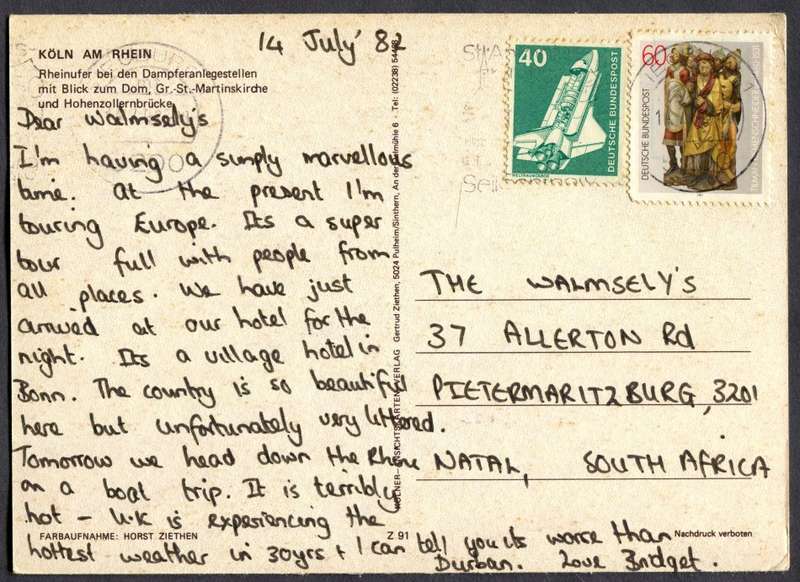 14 July' 82
KÖLN AM RHEIN
Rheinufer bei den Dampferanlegestellen
mit Blick zum Dom, Gr.-St.-Martinskirche
und Hohenzollernbrücke
Dear Walmsely's
I'm having a simply marvellous
time. At the present I'm
touring Europe. Its a super
tour full with people from
all places. We have just
arrived at our hotel for the
night. Its a village hotel in
Bonn. The country is so beautiful
here but unfortunately very littered.
Tomorrow we head down the Rhine
on a boat trip. It is terribly
hot - U.K is experiencing the
hottest weather in 30yrs + I can tell you its worse than
Durban. Love Bridget.
FARBAUFNAHME: HORST ZIETHEN
Z 91
Nachdruck verboten
KÖLNER-ANSICHTSKARTEN-VERLAG Gertrud Ziethen, 5024 Pulheim/Sinthern, An der Mühle 6 · Tel: (02238)
40
DEUTSCHE BUNDESPOST
WELTRAUMLABOR
60
DEUTSCHE BUNDESPOST
THE WALMSELY'S
37 ALLERTON Rd
PIETERMARITZBURG, 3201
NATAL, SOUTH AFRICA